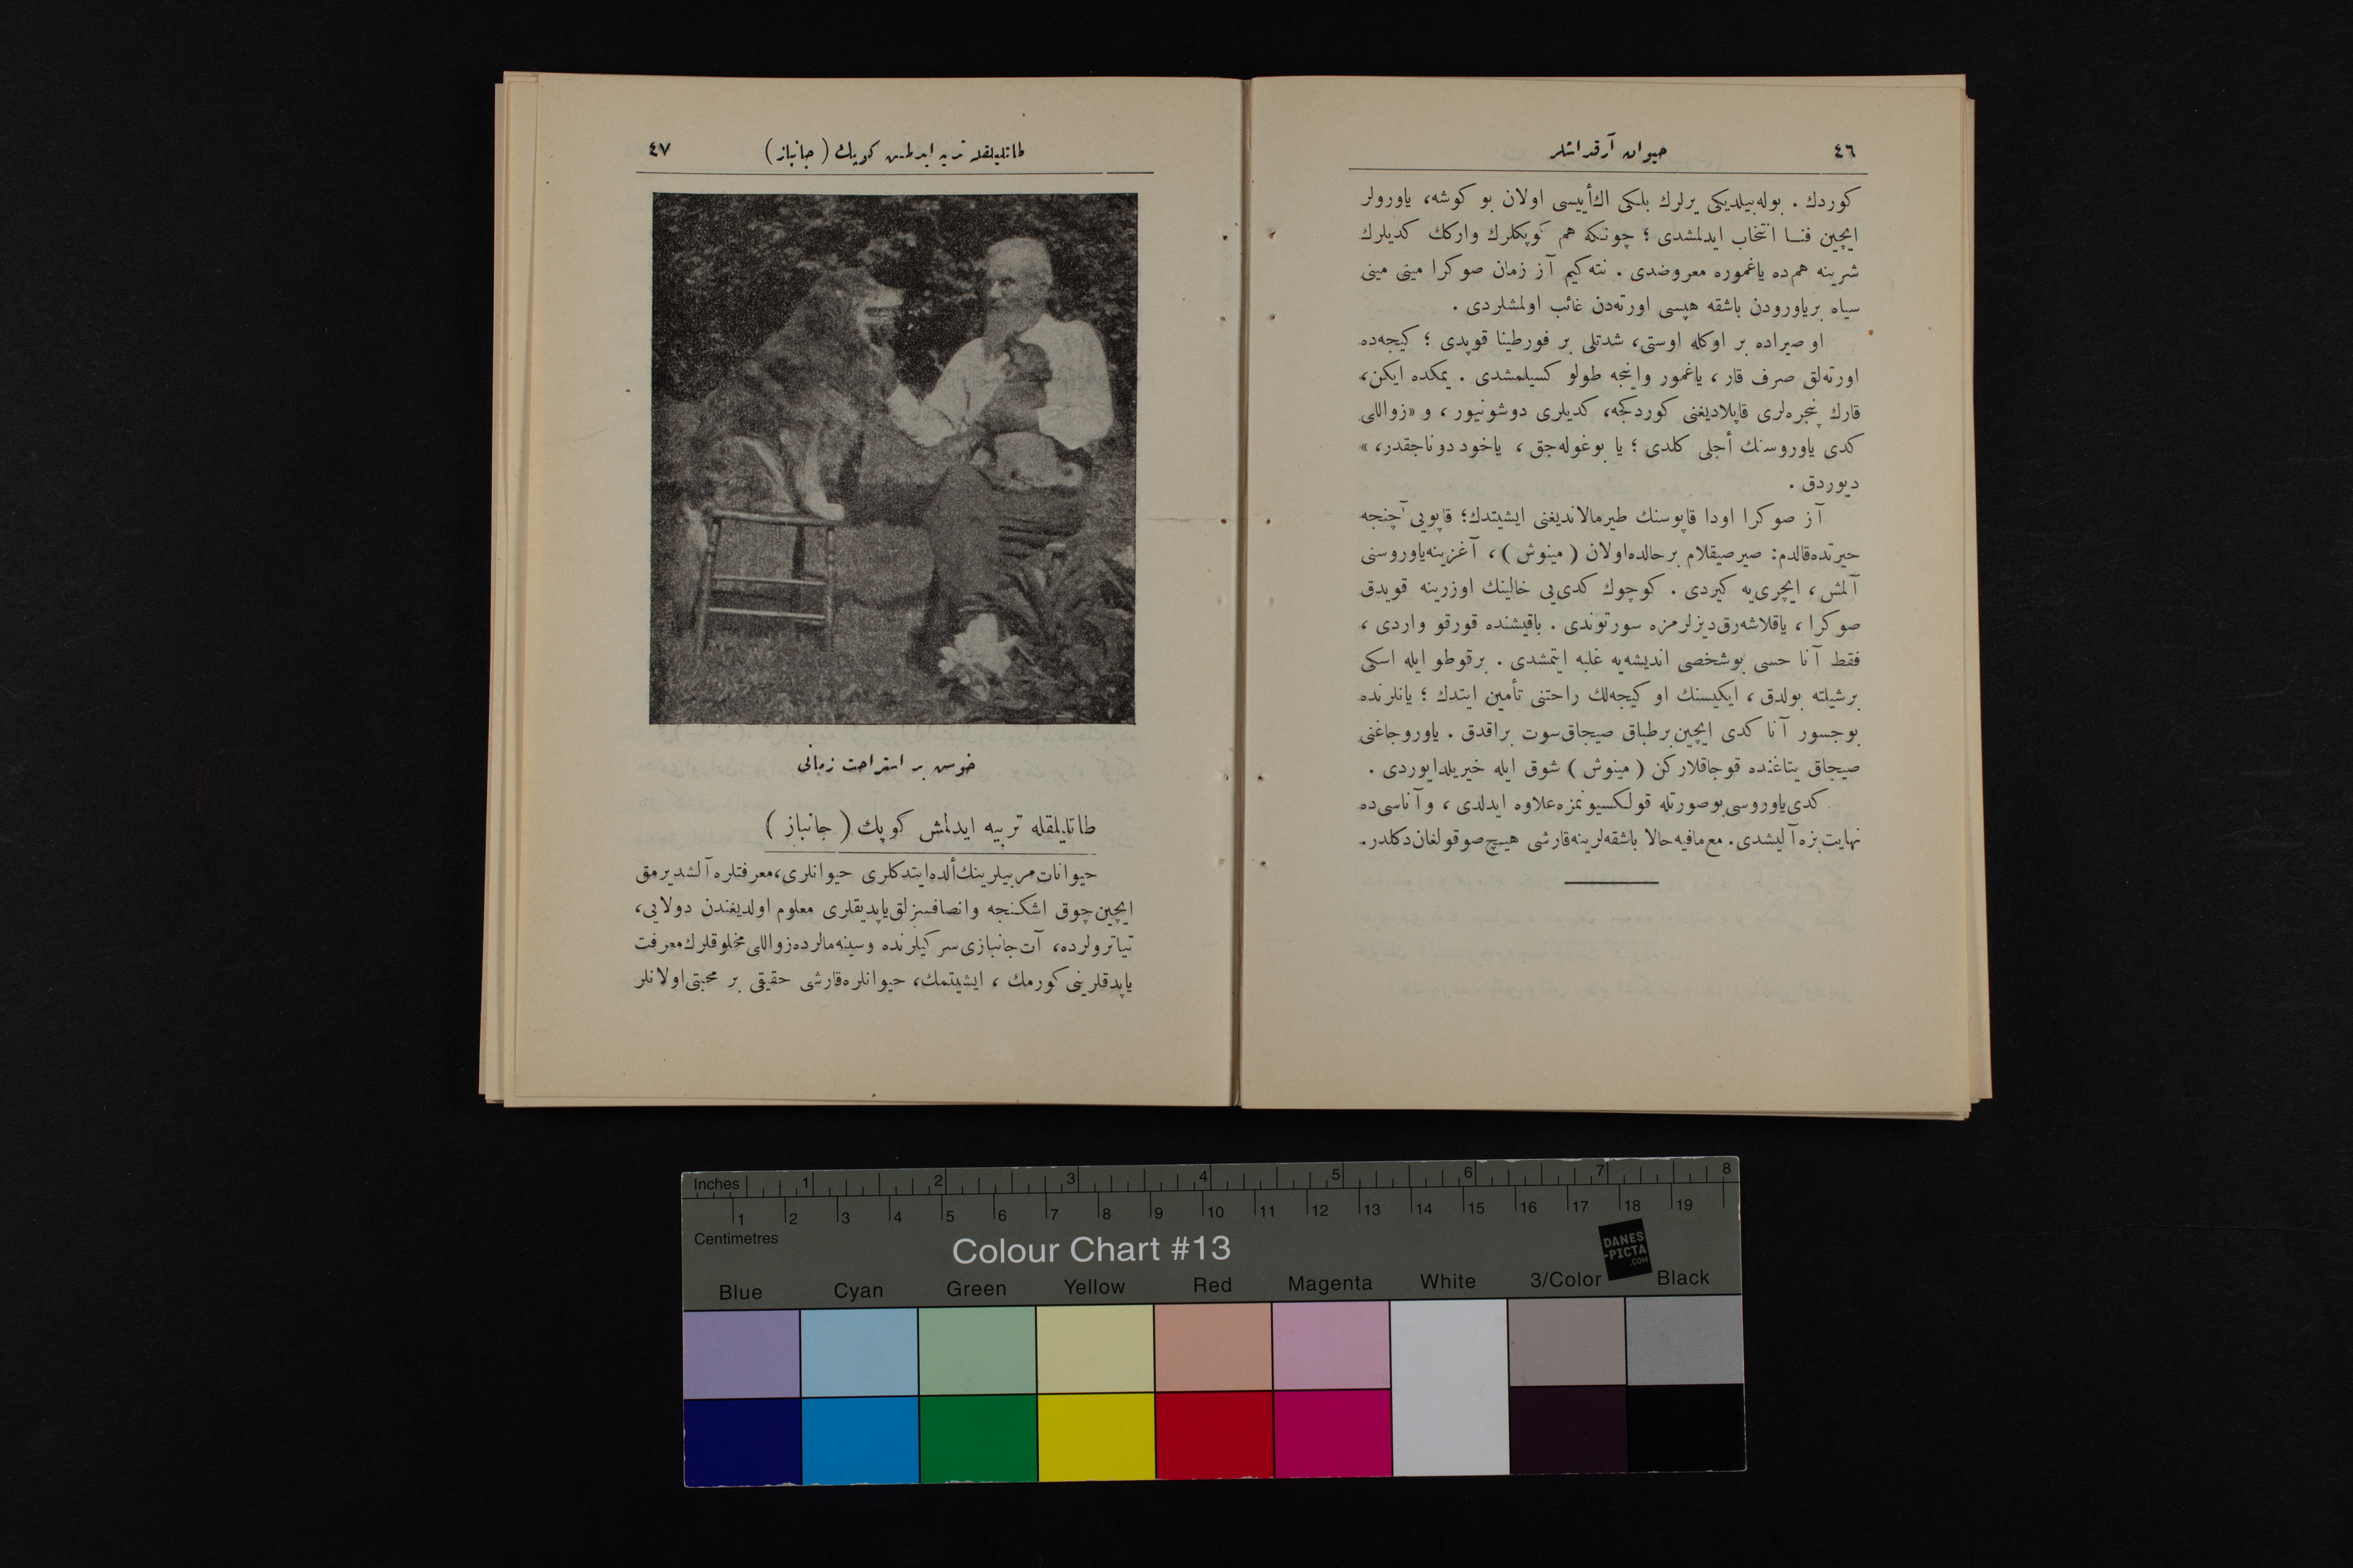 ٤٦
حيوان آرقداشلر
كوردك . بوله‌بيلديكى يرلرك بلكى اك أييسى اولان بو كوشه، ياورولر
ايچين فنا انتخاب ايدلمشدى ؛ چونكه هم كوپكلرك واركك كديلرك
شرينه هم‌ده ياغموره معروضدى . نته‌كيم آز زمان صوكرا مينى مينى
سياه برياورودن باشقه هپسى اورته‌دن غائب اولمشلردى .
او صيراده بر اوكله اوستى، شدتلى بر فورطينا قوپدى ؛ كيجه‌ده
اورته‌لق صرف قار ، ياغمور واينجه طولو كسيلمشدى . يمكده ايكن،
قارك پنجره‌لرى قاپلاديغنى كوردكجه، كديلرى دوشونيور ، و «زواللى
كدى ياوروسنك أجلى كلدى ؛ يا بوغوله‌جق ، ياخود دوناجقدر، »
ديوردق .
آز صوكرا اودا قاپوسنك طيرمالانديغنى ايشيتدك؛ قاپويى آچنجه
حيرتده‌قالدم: صيرصيقلام برحالده‌اولان ( مينوش ) ، آغزينه‌ياوروسنى
آلمش ، ايچرى‌يه كيردى . كوچوك كدى‌يى خالينك اوزرينه قويدق
صوكرا ، ياقلاشه‌رق‌ديزلرمزه سورتوندى . باقيشنده قورقو واردى ،
فقط آنا حسى بوشخصى انديشه‌يه غلبه ايتمشدى . برقوطو ايله اسكى
برشيلته بولدق ، ايكيسنك او كيجه‌لك راحتنى تأمين ايتدك ؛ يانلرنده
بوجسور آنا كدى ايچين‌برطباق صيجاق‌سوت براقدق . ياوروجاغنى
صيجاق يتاغنده قوجاقلاركن ( مينوش ) شوق ايله خيريلدايوردى .
كدى‌ياوروسى‌بوصورتله قولكسيونمزه‌علاوه ايدلدى ، وآناسى‌ده
نهايت‌بزه آليشدى. مع‌مافيه‌حالا باشقه‌لرينه‌قارشى هيچ‌صوقولغان‌دكلدر.
طاتليلقله تربيه ايدلمش كوپك ( جانباز )
٤٧
خوش بر استراحت زمانى
طاتليلقله تربيه ايدلمش كوپك ( جانباز )
حيوانات‌مربيلرينك‌ألده‌ايتدكلرى حيوانلرى،معرفتلره‌آلشديرمق
ايچين‌چوق اشكنجه وانصافسزلق‌ياپديقلرى معلوم اولديغندن دولايى،
تياترولرده، آت‌جانبازى‌سركيلرنده وسينه‌مالرده‌زواللى‌مخلوقلرك‌معرفت
ياپدقلرينى‌كورمك ، ايشيتمك، حيوانلره‌قارشى حقيقى بر محبتى‌اولانلر
Inches 1 2 3 4 5 6 7 8
1 2 3 4 5 6 7 8 9 10 11 12 13 14 15 16 17 18 19
Centimetres
Colour Chart #13
DANES
-PICTA
.COM
Blue Cyan Green Yellow Red Magenta White 3/Color Black